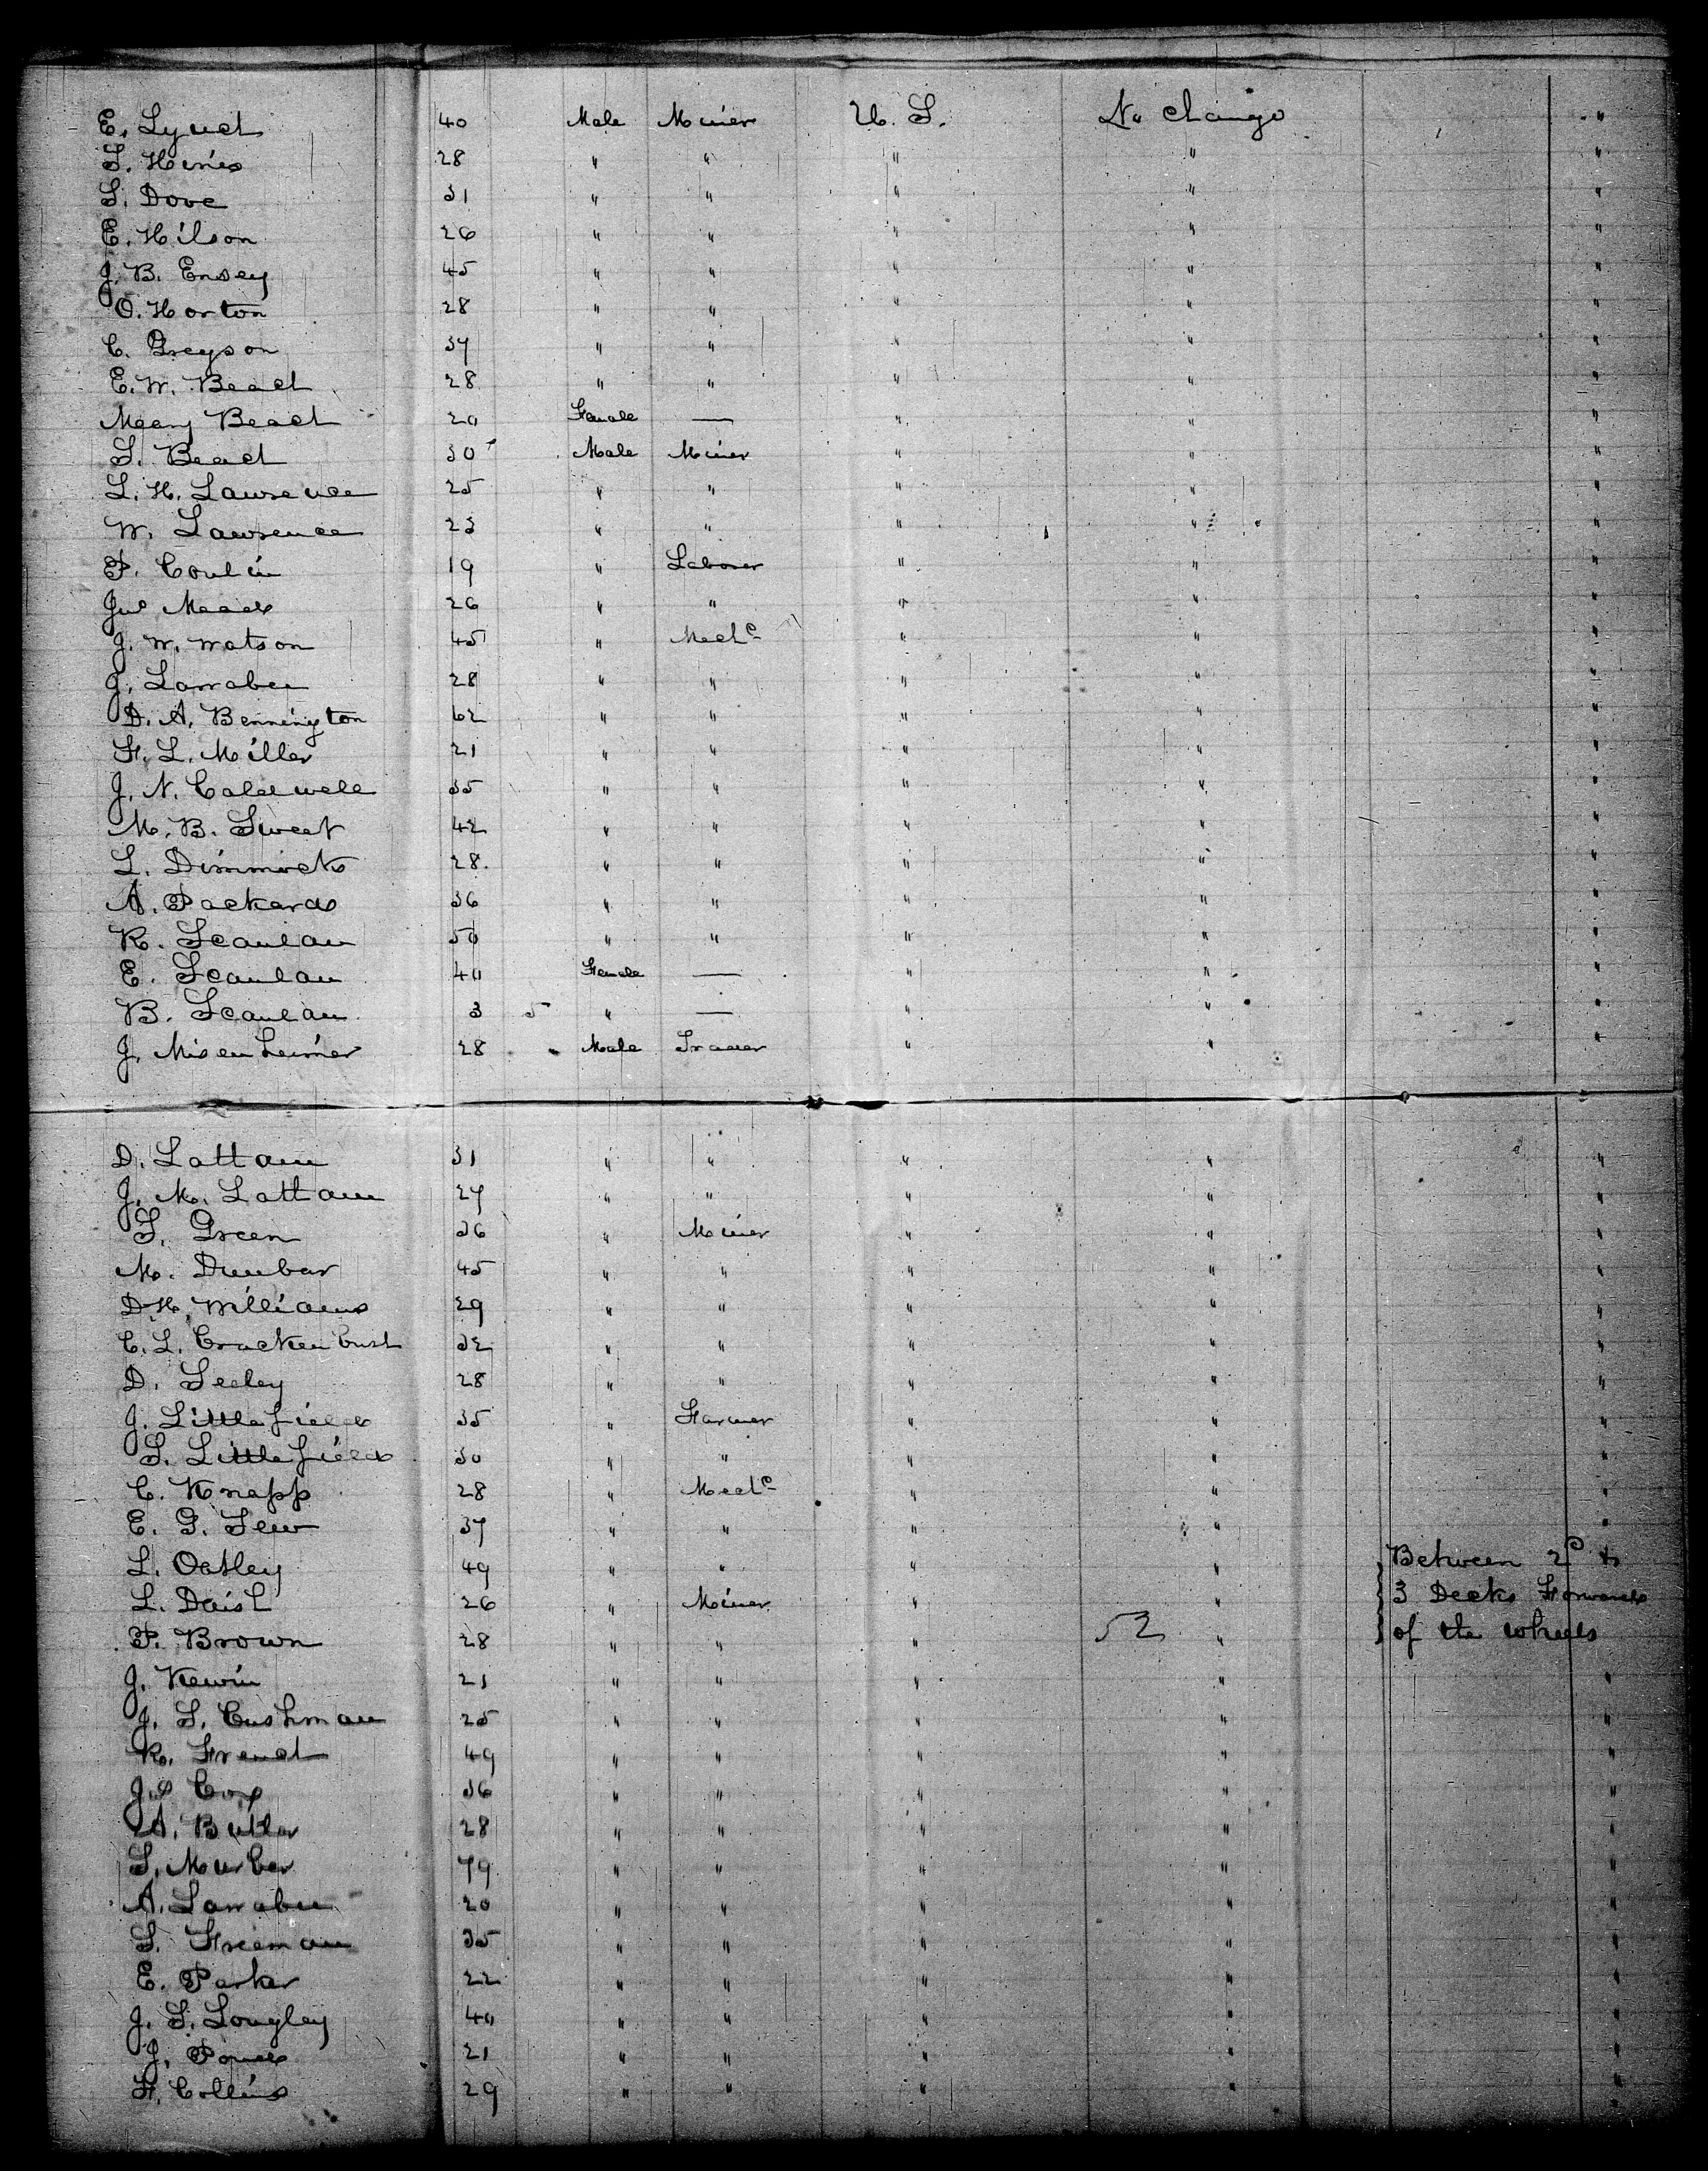 E. Lynch 40 Male Miner U. S. No Change "
S. Hines 28 " " " " "
S. Dove 31 " " " " "
E. Hilson 26 " " " " "
J. B. Ensey 45 " " " " "
O. Horton 28 " " " " "
C. Greyson 37 " " " " "
E. W. Beach 28 " " " " "
Meany Beach 20 Female — " " "
S. Beach 30 Male Miner " " "
L. H. Lawrence 25 " " " " "
W. Lawrence 23 " " " " "
P. Conlin 19 " Laborer " " "
Jno Meads 26 " " " " "
J. W. Watson 45 " Mechc " " "
J. Larrabee 28 " " " " "
D. A. Bennington 62 " " " " "
F. L. Miller 21 " " " " "
J. N. Caldwell 35 " " " " "
M. B. Sweet 42 " " " " "
L. Dimmick 28. " " " " "
A. Packard 36 " " " " "
R. Scanlan 50 " " " " "
E. Scanlan 40 Female — " " "
B. Scanlan 3 5 " — " " "
J. Misenheimer 28 Male Trader " " "
D. Lattam 31 " " " " "
J. M. Lattam 27 " " " " "
S. Green 36 " Miner " " "
M. Dunbar 45 " " " " "
D. H. Williams 29 " " " " "
C. L. Crackenbush 32 " " " " "
D. Seeley 28 " " " " "
J. Littlefield 35 " Farmer " " "
S. Littlefield 30 " " " " "
C. Knapp 28 " Mechc " " "
E. G. Sew 37 " " " " "
L. Oatley 49 " " " " Between 2d &
L. Daish 26 " Miner " " 3 Decks Forward
P. Brown 28 " " " 52 " of the wheels
J. Kewin 21 " " " " "
J. S. Cushman 25 " " " " "
R. French 49 " " " " "
Js Cox 36 " " " " "
A. Butler 28 " " " " "
S. Murber 79 " " " " "
A. Larrabee 20 " " " " "
S. Freeman 35 " " " " "
E. Parker 22 " " " " "
J. S. Longley 40 " " " " "
J. Powers 21 " " " " "
F. Collins 29 " " " " "